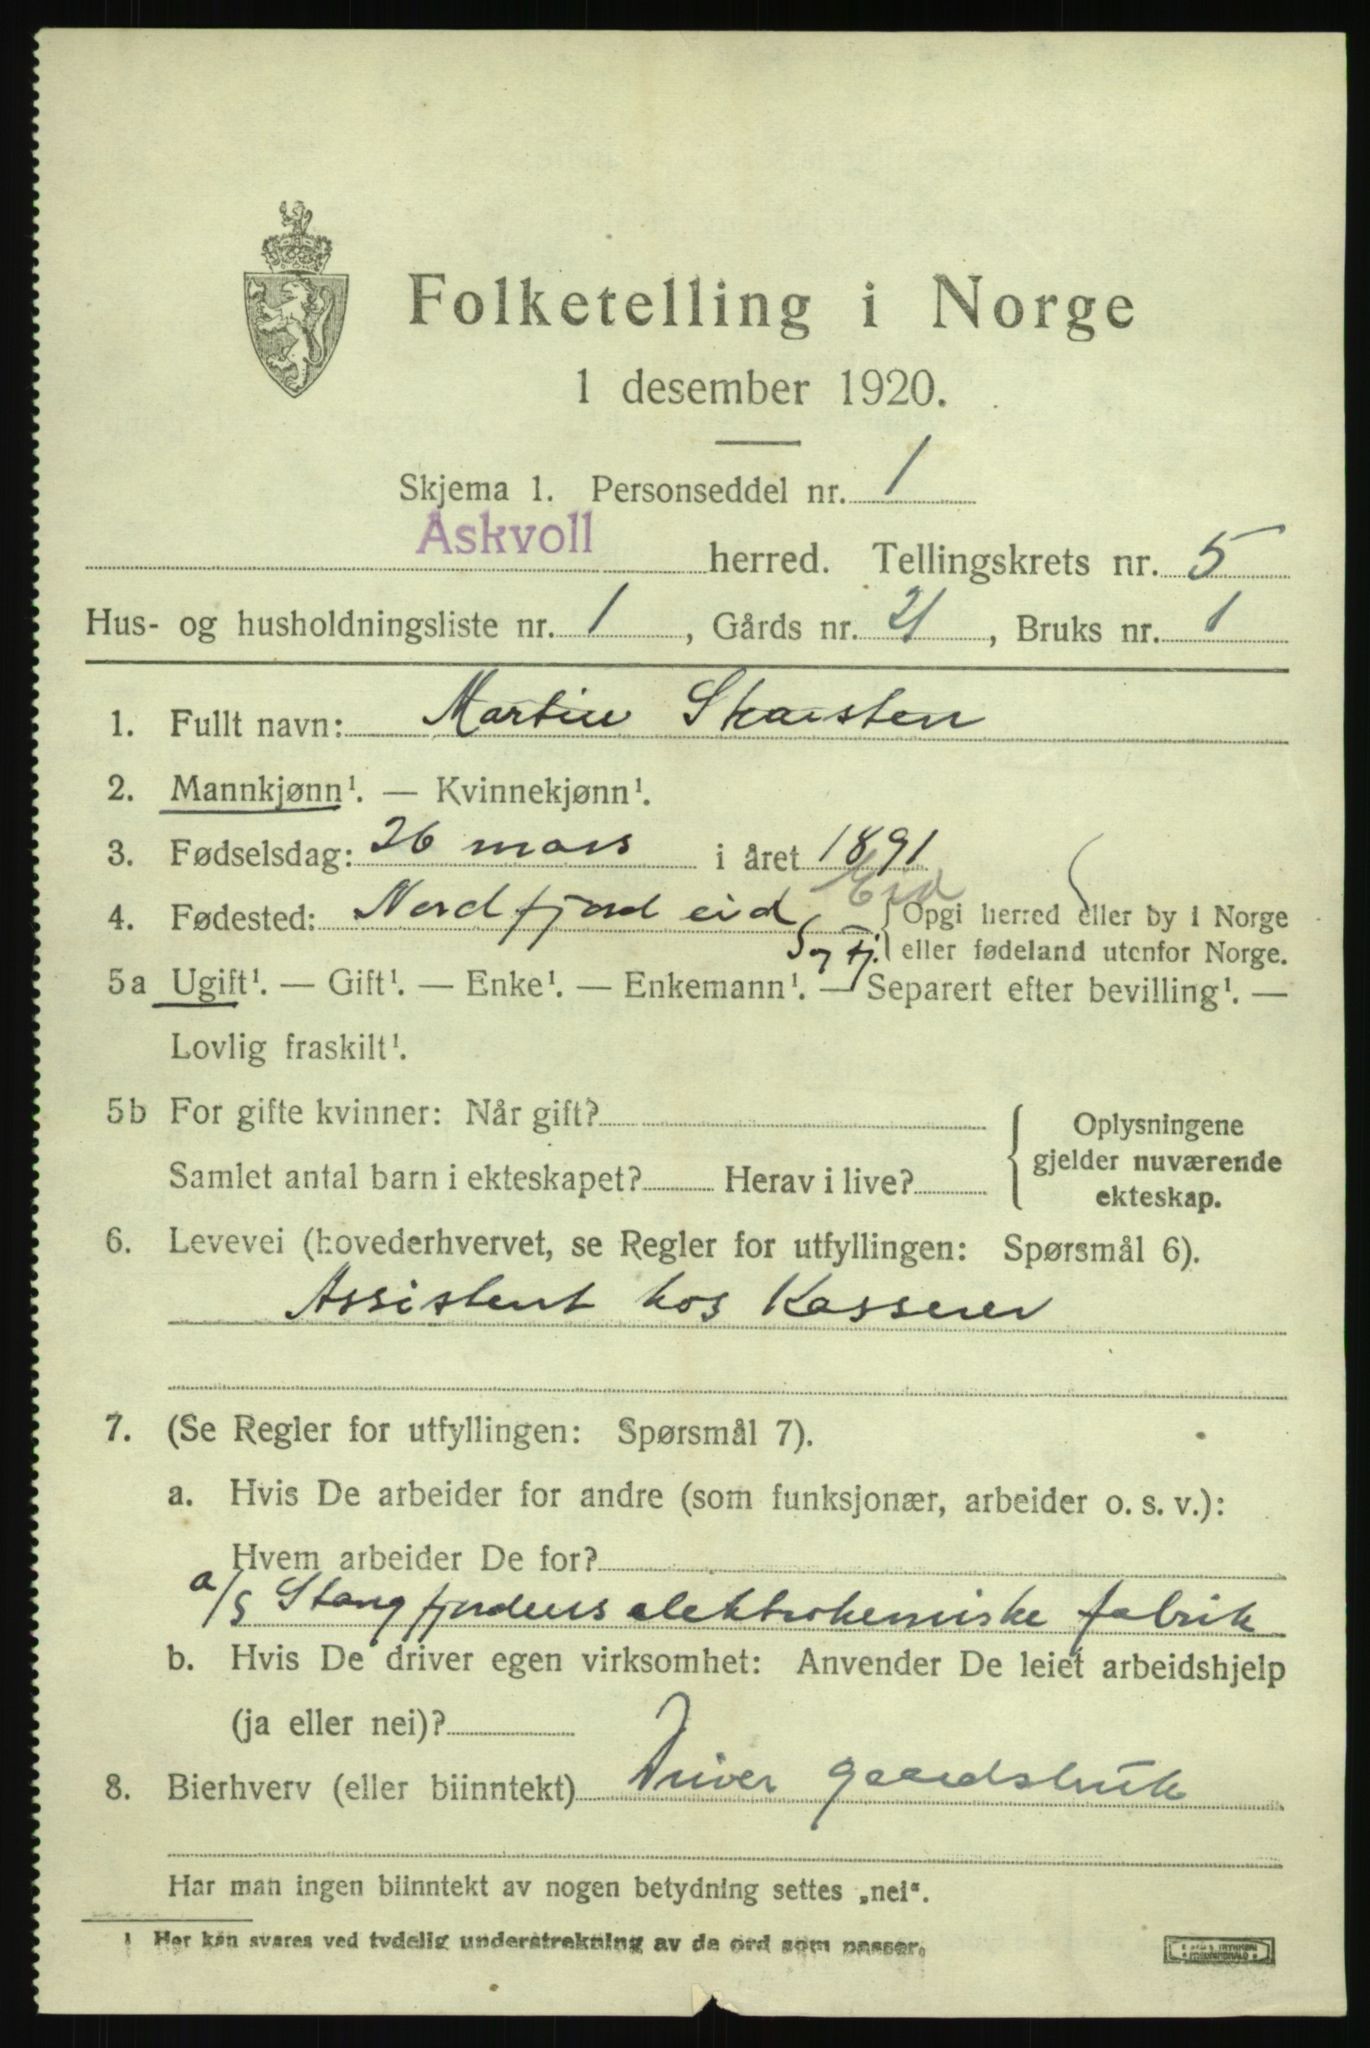 Folketelling i Norge
1 desember 1920.
Skjema 1. Personseddel nr. 1
Askvoll herred. Tellingskrets nr. 5
Hus- og husholdningsliste nr. 1, Gårds nr. 21, Bruks nr. 1
1. Fullt navn: Martin Skarsten
2. Mannkjønn¹. — Kvinnekjønn¹.
3. Fødselsdag: 26 mars i året 1891
Eid
4. Fødested: Nordfjordeid { Opgi herred eller by i Norge
S og Fj. eller fødeland utenfor Norge.
5a Ugift¹. — Gift¹. — Enke¹. — Enkemann¹. — Separert efter bevilling¹. —
Lovlig fraskilt¹.
5b For gifte kvinner: Når gift?
Samlet antal barn i ekteskapet? Herav i live?
Oplysningene
gjelder nuværende
ekteskap.
6. Levevei (hovederhvervet, se Regler for utfyllingen: Spørsmål 6).
Assistent hos Kasserer
7. (Se Regler for utfyllingen: Spørsmål 7).
a. Hvis De arbeider for andre (som funksjonær, arbeider o. s. v.):
Hvem arbeider De for?
a/s Stangfjordens elektrokemiske fabrik
b. Hvis De driver egen virksomhet: Anvender De leiet arbeidshjelp
(ja eller nei)?
8. Bierhverv (eller biinntekt) Driver gaardsbruk
Har man ingen biinntekt av nogen betydning settes „nei“.
1 Her kan svares ved tydelig understrekning av de ord som passer.